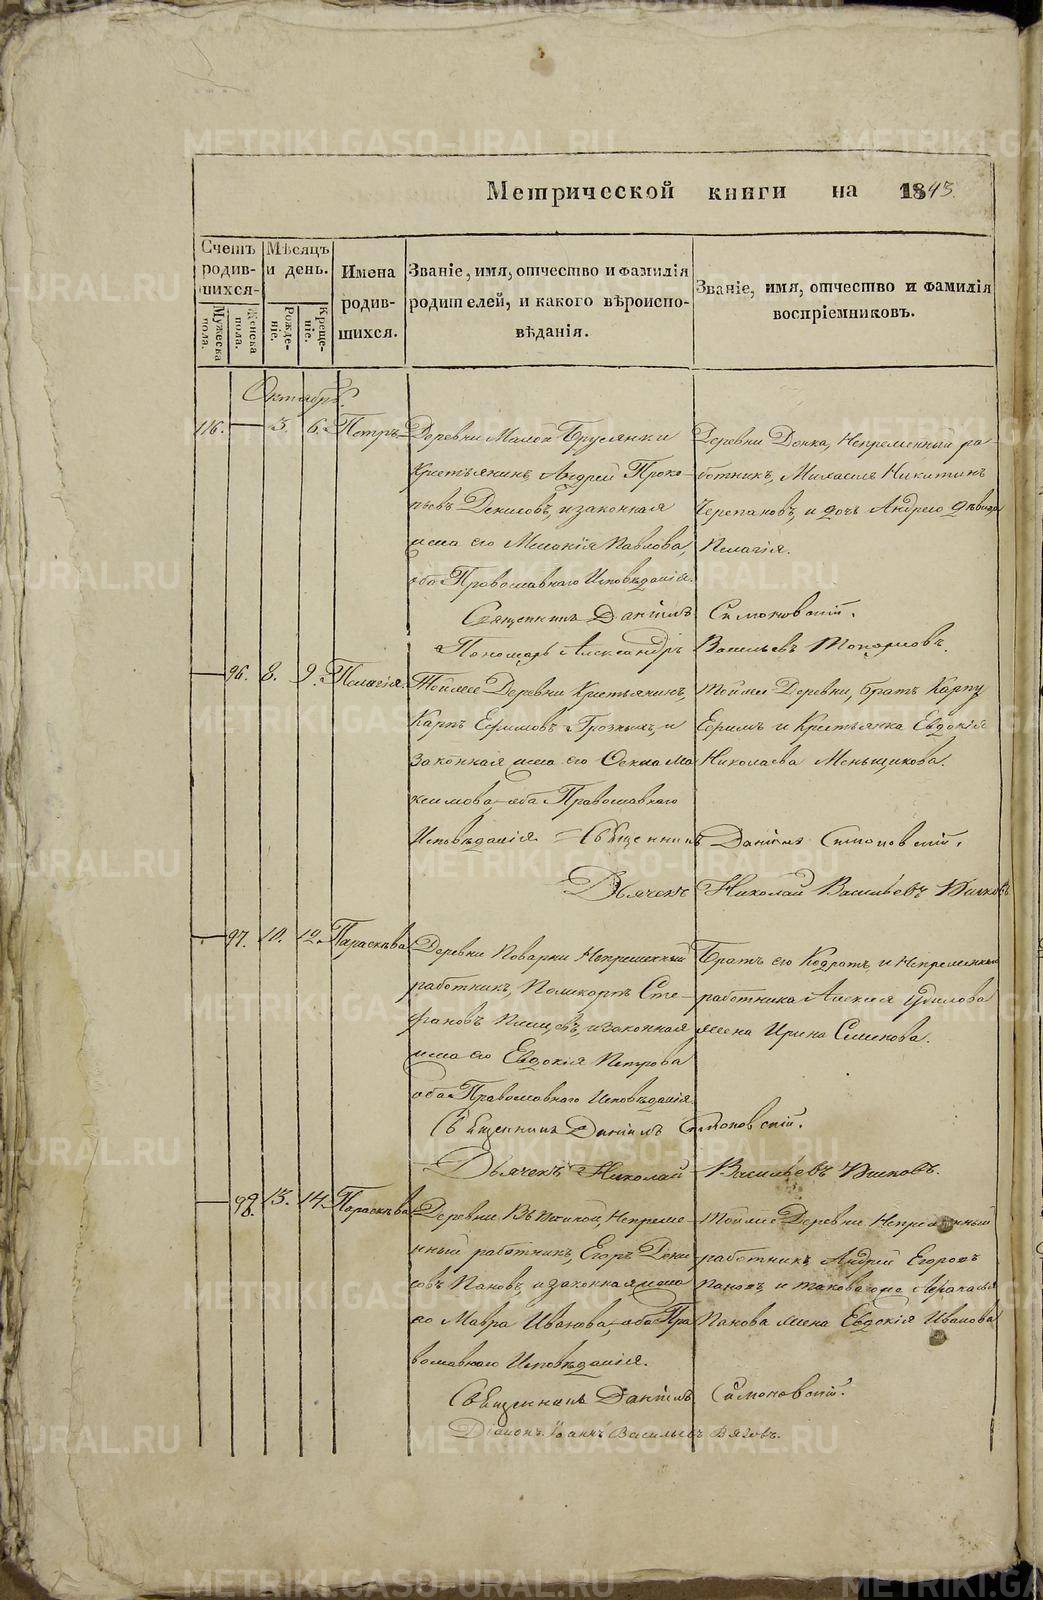 Метрической книги на 1843.
Счетъ родив- шихся.
Мѣсяцъ и день.
Имена родив- шихся.
Званіе, имя, отчество и фамилія родителей, и какого вѣроиспо- вѣданія.
Званіе, имя, отчество и фамилія воспріемниковъ.
Мужеска пола.
Женска пола.
Рожде- ніе.
Креще- ніе.
Октябрь.
116. — 3. 6. Петръ
Деревни Малой Брусянки
Крестьянинъ, Андрей Проко-
пьевъ Денисовъ, и законная
жена его Меланія Павлова,
оба Православнаго Исповѣданія.
Деревни Донка, Непременный ра-
ботникъ, Михаилъ Никитинъ
Черепановъ, и дочь Андрею дѣвица
Пелагія.
Священникъ Даніилъ Симоновскій.
Пономарь Александръ Васильевъ Топорковъ.
— 96. 8. 9. Пелагія.
Тойже Деревни Крестьянинъ,
Карпъ Ефимовъ Грозныхъ, и
законная жена его Фекла Ма
ксимова, оба Православнаго
Исповѣданія.
Тойже Деревни, братъ Карпу
Ефимъ и Крестьянка Евдокія
Николаева Меньщикова.
Священникъ Даніилъ Симоновскій.
Дьячекъ Николай Васильевъ
— 97. 10. 12. Параскева
Деревни Поварни Непременный
работникъ, Поликарпъ Сте-
фановъ и законная
жена его Евдокія Петрова
оба Православнаго Исповѣданія.
Братъ его Кодратъ, и Непременнаго
работника Алексія
жена Ирина Семенова.
Священникъ Даніилъ Симоновскій.
Дьячекъ Николай Васильевъ
— 98. 13. 14. Параскева
Деревни Непреме-
нный работникъ, Егоръ Дени
совъ Пановъ, и законная жена
его Мавра Иванова, оба Пра
вославнаго Исповѣданія.
Тойже Деревни Непременный
работникъ Андрей Егоровъ
Пановъ, и таковагоже
Панова жена Евдокія Иванова
Священникъ Даніилъ Симоновскій.
Діаконъ Іоаннъ Васильевъ Вяговъ.
METRIKI.GASO-URAL.RU